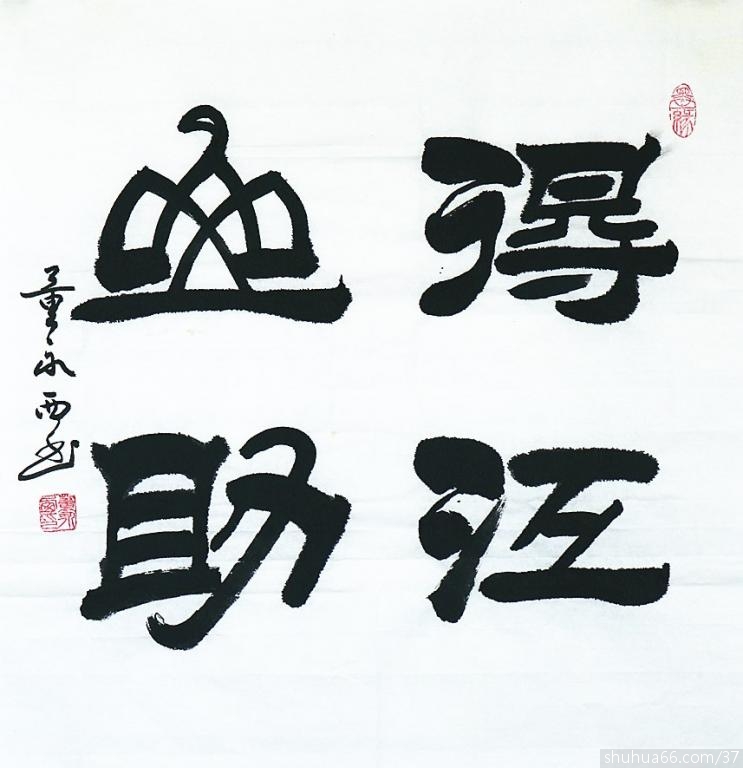 得江
山助
董永西书
shuhua66.com/37